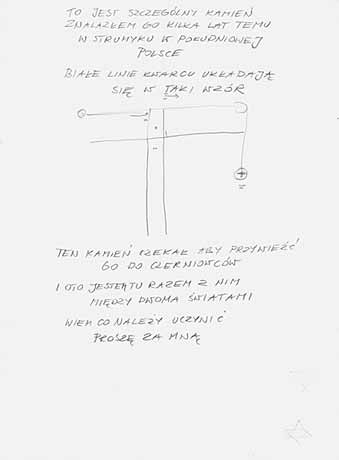 TO JEST SZCZEGÓLNY KAMIEŃ
ZNALAZŁEM GO KILKA LAT TEMU
W STRUMYKU W POŁUDNIOWEJ
POLSCE
BIAŁE LINIE KWARCU UKŁADAJĄ
SIĘ W TAKI WZÓR
TEN KAMIEŃ CZEKAŁ ABY PRZYWIEŹĆ
GO DO CZERNIOWCÓW
I OTO JESTEM TU RAZEM Z NIM
MIĘDZY DWOMA ŚWIATAMI
WIEM CO NALEŻY UCZYNIĆ
PROSZĘ ZA MNĄ